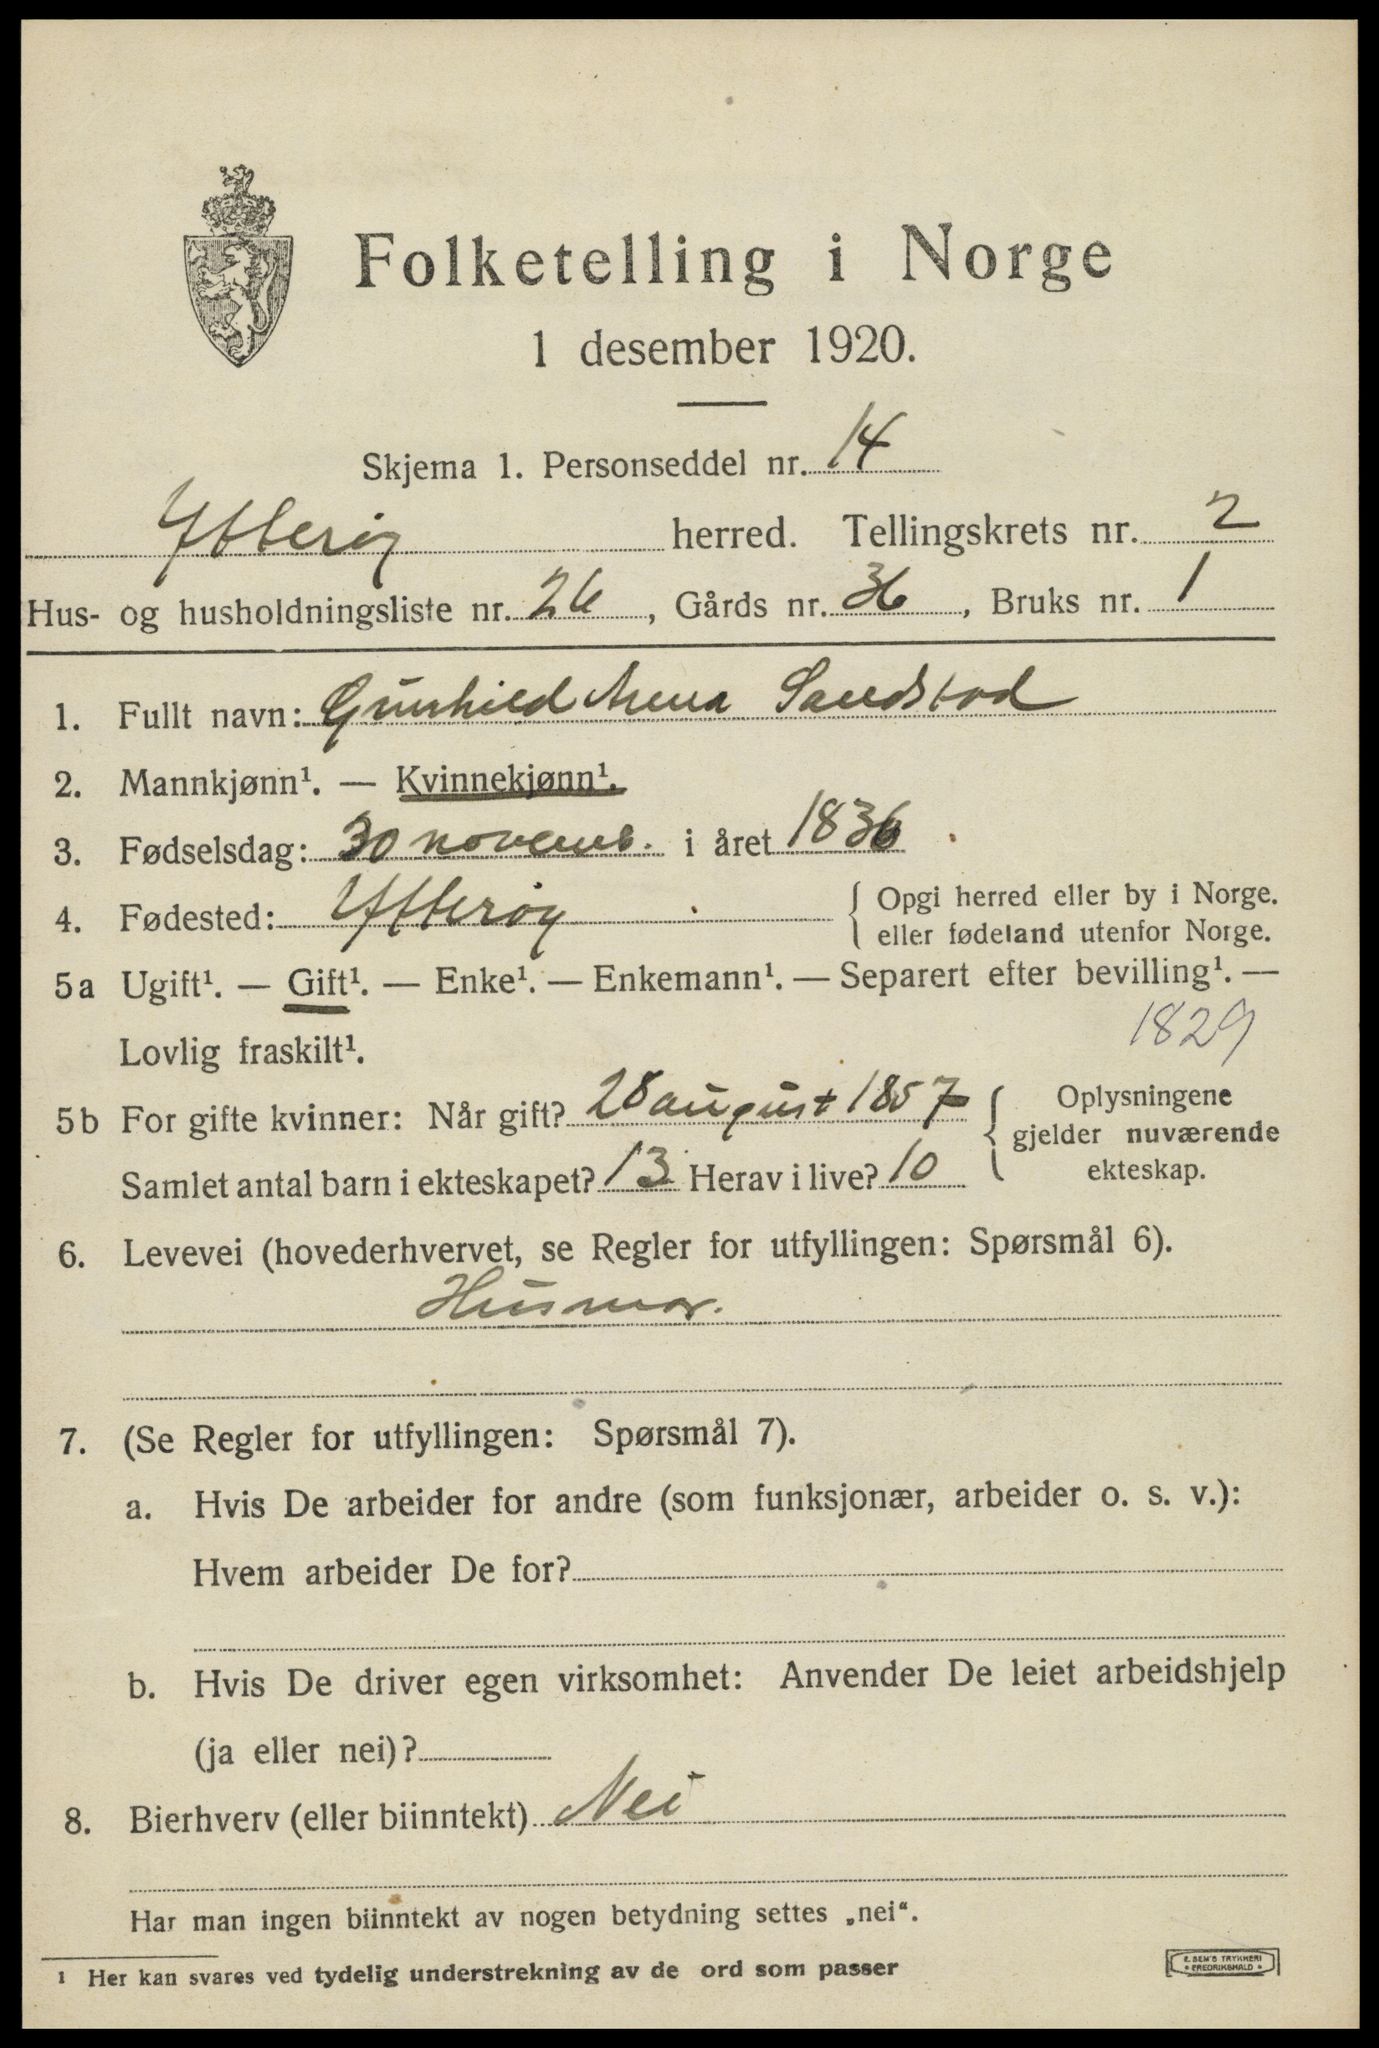 Folketelling i Norge
1 desember 1920.
Skjema 1. Personseddel nr. 14
Ytterøy herred. Tellingskrets nr. 2
Hus- og husholdningsliste nr. 26, Gårds nr. 36, Bruks nr. 1
1. Fullt navn: Gunhild Anna Sandstad
2. Mannkjønn¹. — Kvinnekjønn¹.
3. Fødselsdag: 30 novemb. i året 1836
4. Fødested: Ytterøy { Opgi herred eller by i Norge.
eller fødeland utenfor Norge.
5a Ugift¹. — Gift¹. — Enke¹. — Enkemann¹. — Separert efter bevilling¹. —
Lovlig fraskilt¹. 1829
5b For gifte kvinner: Når gift? 28 august 1857 { Oplysningene
gjelder nuværende
Samlet antal barn i ekteskapet? 13 Herav i live? 10 ekteskap.
6. Levevei (hovederhvervet, se Regler for utfyllingen: Spørsmål 6).
Husmor.
7. (Se Regler for utfyllingen: Spørsmål 7).
a. Hvis De arbeider for andre (som funksjonær, arbeider o. s. v.):
Hvem arbeider De for?
b. Hvis De driver egen virksomhet: Anvender De leiet arbeidshjelp
(ja eller nei)?
8. Bierhverv (eller biinntekt) Nei
Har man ingen biinntekt av nogen betydning settes „nei“.
¹ Her kan svares ved tydelig understrekning av de ord som passer
E. SEM'S TRYKKERI
• FREDRIKSHALD •